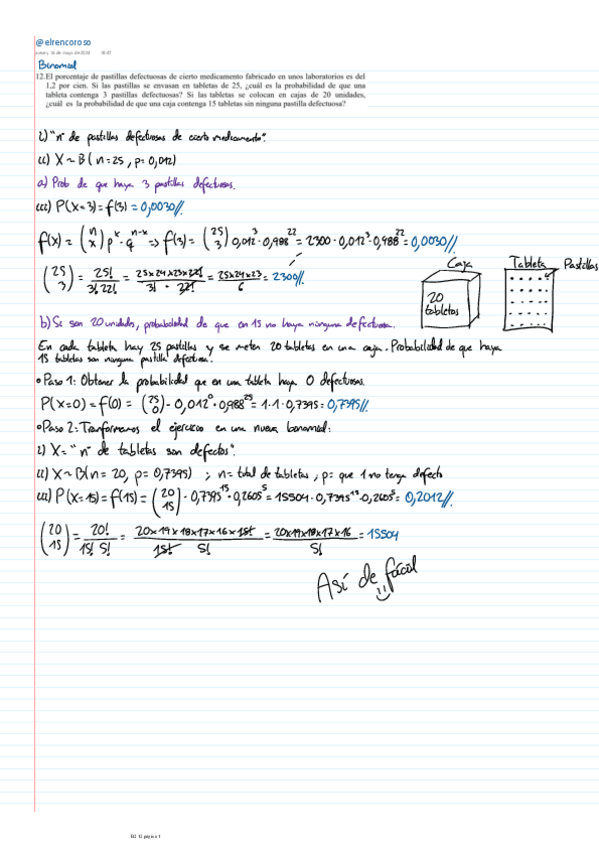 @elrencoroso
jueves, 16 de mayo de 2024 16:47
Binomial
12.El porcentaje de pastillas defectuosas de cierto medicamento fabricado en unos laboratorios es del
1,2 por cien. Si las pastillas se envasan en tabletas de 25, ¿cuál es la probabilidad de que una
tableta contenga 3 pastillas defectuosas? Si las tabletas se colocan en cajas de 20 unidades,
¿cuál es la probabilidad de que una caja contenga 15 tabletas sin ninguna pastilla defectuosa?
i) "nº de pastillas defectuosas de cierto medicamento".
ii) X ~ B(n=25, p=0,012)
a) Prob de que haya 3 pastillas defectuosas.
iii) P(X=3) = f(3) = 0,0030//.
f(x) = (n x) p^x · q^n-x => f(3) = (25 3) 0,012^3 · 0,988^22 = 2300 · 0,012^3 · 0,988^22 = 0,0030//.
(25 3) = 25!/3! 22! = 25x24x23x22!/3! · 22! = 25x24x23/6 = 2300//.
Caja
Tableta
Pastillas
20 tabletas
b) Si son 20 unidades, probabilidad de que en 15 no haya ninguna defectuosa.
En cada tableta hay 25 pastillas y se meten 20 tabletas en una caja. Probabilidad de que haya
15 tabletas son ninguna pastilla defectuosa.
• Paso 1: Obtener la probabilidad que en una tableta haya 0 defectuosas.
P(X=0) = f(0) = (25 0) · 0,012^0 · 0,988^25 = 1·1·0,7395 = 0,7395//.
• Paso 2: Tranformamos el ejercicio en una nueva binomial:
i) X = "nº de tabletas son defectos".
ii) X ~ B(n=20, p=0,7395) ; n= total de tabletas, p= que 1 no tenga defecto
iii) P(X=15) = f(15) = (20 15) · 0,7395^15 · 0,2605^5 = 15504 · 0,7395^15 · 0,2605^5 = 0,2012//.
(20 15) = 20!/15! 5! = 20x19x18x17x16x15!/15! 5! = 20x19x18x17x16/5! = 15504
Así de fácil
EJ 12 página 1